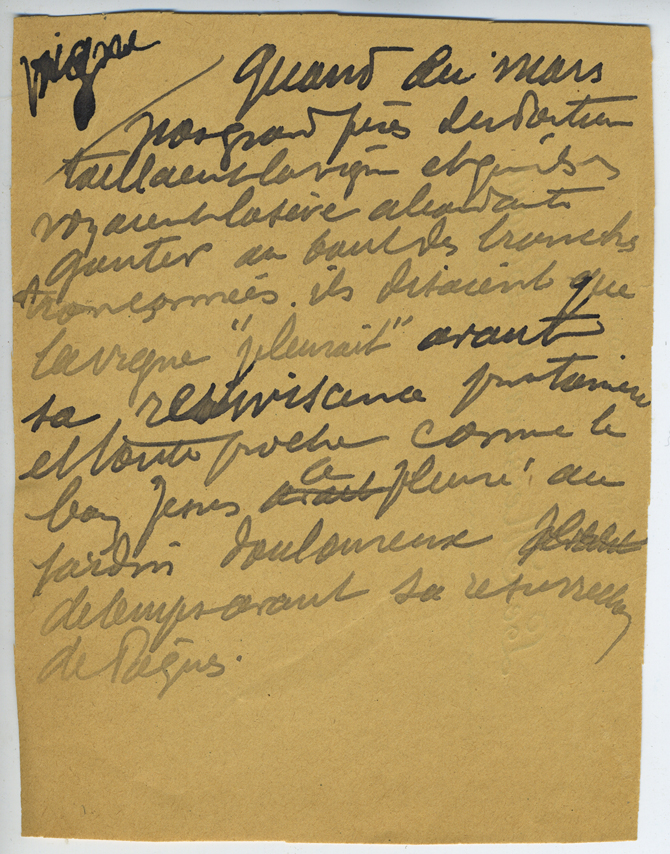 vigne
Quand en mars
nos grand pères
taillaient la vigne et qu'ils
voyaient la sève abondante
goutter au bout des branches
tronçonnées, ils disaient que
la vigne "pleurait" avant
sa reviviscence printanière
et toute proche comme le
bon Jésus a pleuré au
jardin douloureux
de temps avant sa résurrection
de Pâques.